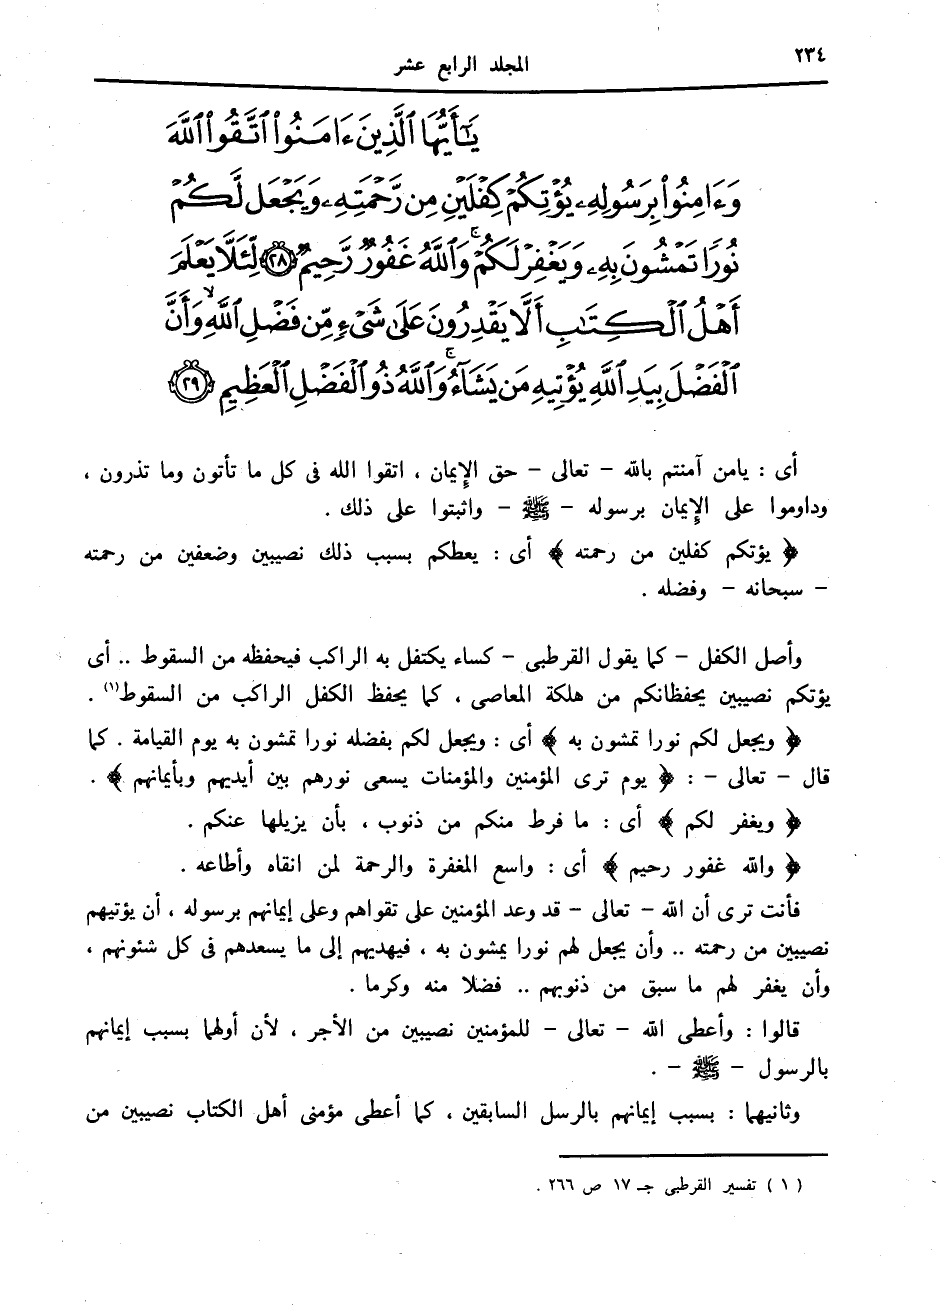 ٢٣٤
المجلد الرابع عشر
يَٰٓأَيُّهَا ٱلَّذِينَ ءَامَنُوا۟ ٱتَّقُوا۟ ٱللَّهَ
وَءَامِنُوا۟ بِرَسُولِهِۦ يُؤْتِكُمْ كِفْلَيْنِ مِن رَّحْمَتِهِۦ وَيَجْعَل لَّكُمْ
نُورًا تَمْشُونَ بِهِۦ وَيَغْفِرْ لَكُمْ ۚ وَٱللَّهُ غَفُورٌ رَّحِيمٌ ﴿٢٨﴾ لِّئَلَّا يَعْلَمَ
أَهْلُ ٱلْكِتَٰبِ أَلَّا يَقْدِرُونَ عَلَىٰ شَىْءٍ مِّن فَضْلِ ٱللَّهِ ۙ وَأَنَّ
ٱلْفَضْلَ بِيَدِ ٱللَّهِ يُؤْتِيهِ مَن يَشَآءُ ۚ وَٱللَّهُ ذُو ٱلْفَضْلِ ٱلْعَظِيمِ ﴿٢٩﴾
أى : يامن آمنتم بالله – تعالى – حق الإيمان ، اتقوا الله فى كل ما تأتون وما تذرون ،
وداوموا على الإيمان برسوله – ﷺ – واثبتوا على ذلك .
﴿ يؤتكم كفلين من رحمته ﴾ أى : يعطكم بسبب ذلك نصيبين وضعفين من رحمته
– سبحانه – وفضله .
وأصل الكفل – كما يقول القرطبى – كساء يكتفل به الراكب فيحفظه من السقوط .. أى
يؤتكم نصيبين يحفظانكم من هلكة المعاصى ، كما يحفظ الكفل الراكب من السقوط(١) .
﴿ ويجعل لكم نورا تمشون به ﴾ أى : ويجعل لكم بفضله نورا تمشون به يوم القيامة . كما
قال – تعالى – : ﴿ يوم ترى المؤمنين والمؤمنات يسعى نورهم بين أيديهم وبأيمانهم ﴾ .
﴿ ويغفر لكم ﴾ أى : ما فرط منكم من ذنوب ، بأن يزيلها عنكم .
﴿ والله غفور رحيم ﴾ أى : واسع المغفرة والرحمة لمن اتقاه وأطاعه .
فأنت ترى أن الله – تعالى – قد وعد المؤمنين على تقواهم وعلى إيمانهم برسوله ، أن يؤتيهم
نصيبين من رحمته .. وأن يجعل لهم نورا يمشون به ، فيهديهم إلى ما يسعدهم فى كل شئونهم ،
وأن يغفر لهم ما سبق من ذنوبهم .. فضلا منه وكرما .
قالوا : وأعطى الله – تعالى – للمؤمنين نصيبين من الأجر ، لأن أولهما بسبب إيمانهم
بالرسول – ﷺ – .
وثانيهما : بسبب إيمانهم بالرسل السابقين ، كما أعطى مؤمنى أهل الكتاب نصيبين من
( ١ ) تفسير القرطبى جـ ١٧ ص ٢٦٦ .